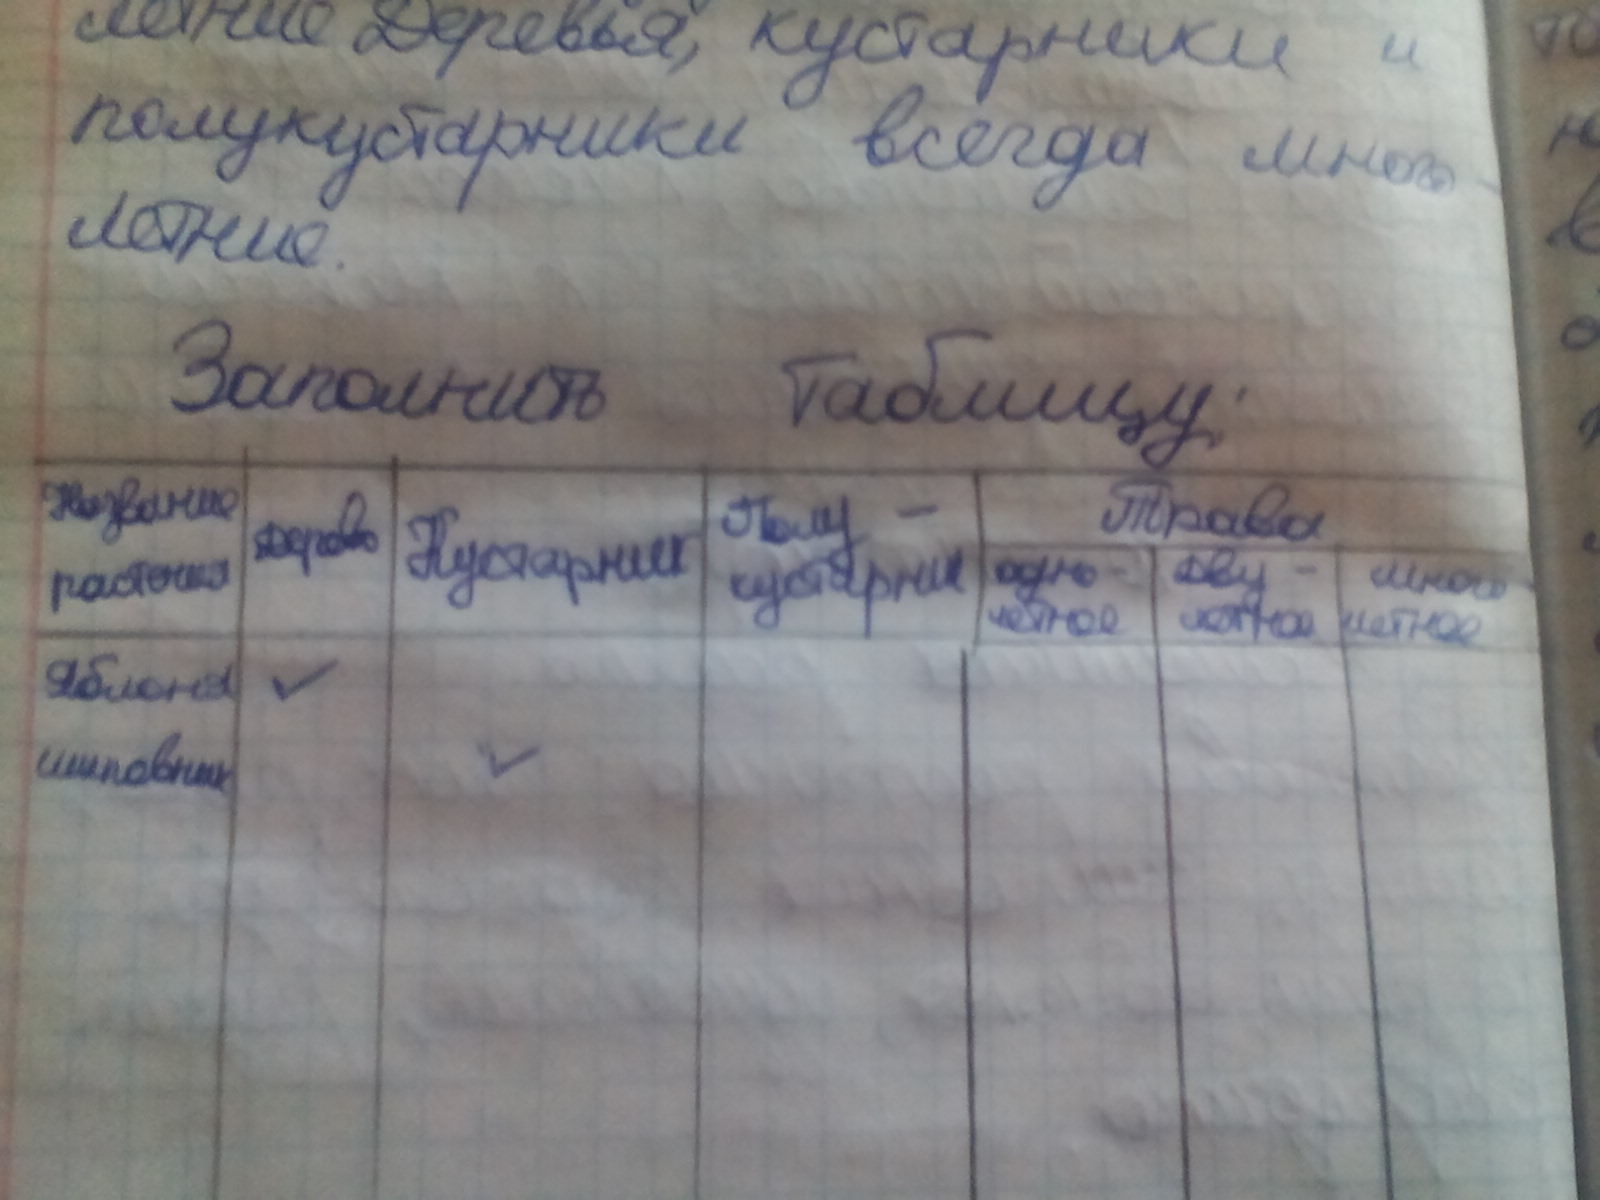 летние Деревья, кустарники и
полукустарники всегда много-
летние.
Заполнить таблицу:
Название растения
Дерево
Кустарник
Полу-
кустарник
Трава
одно-
летнее
дву-
летнее
много-
летнее
Яблоня ✓
шиповник ✓